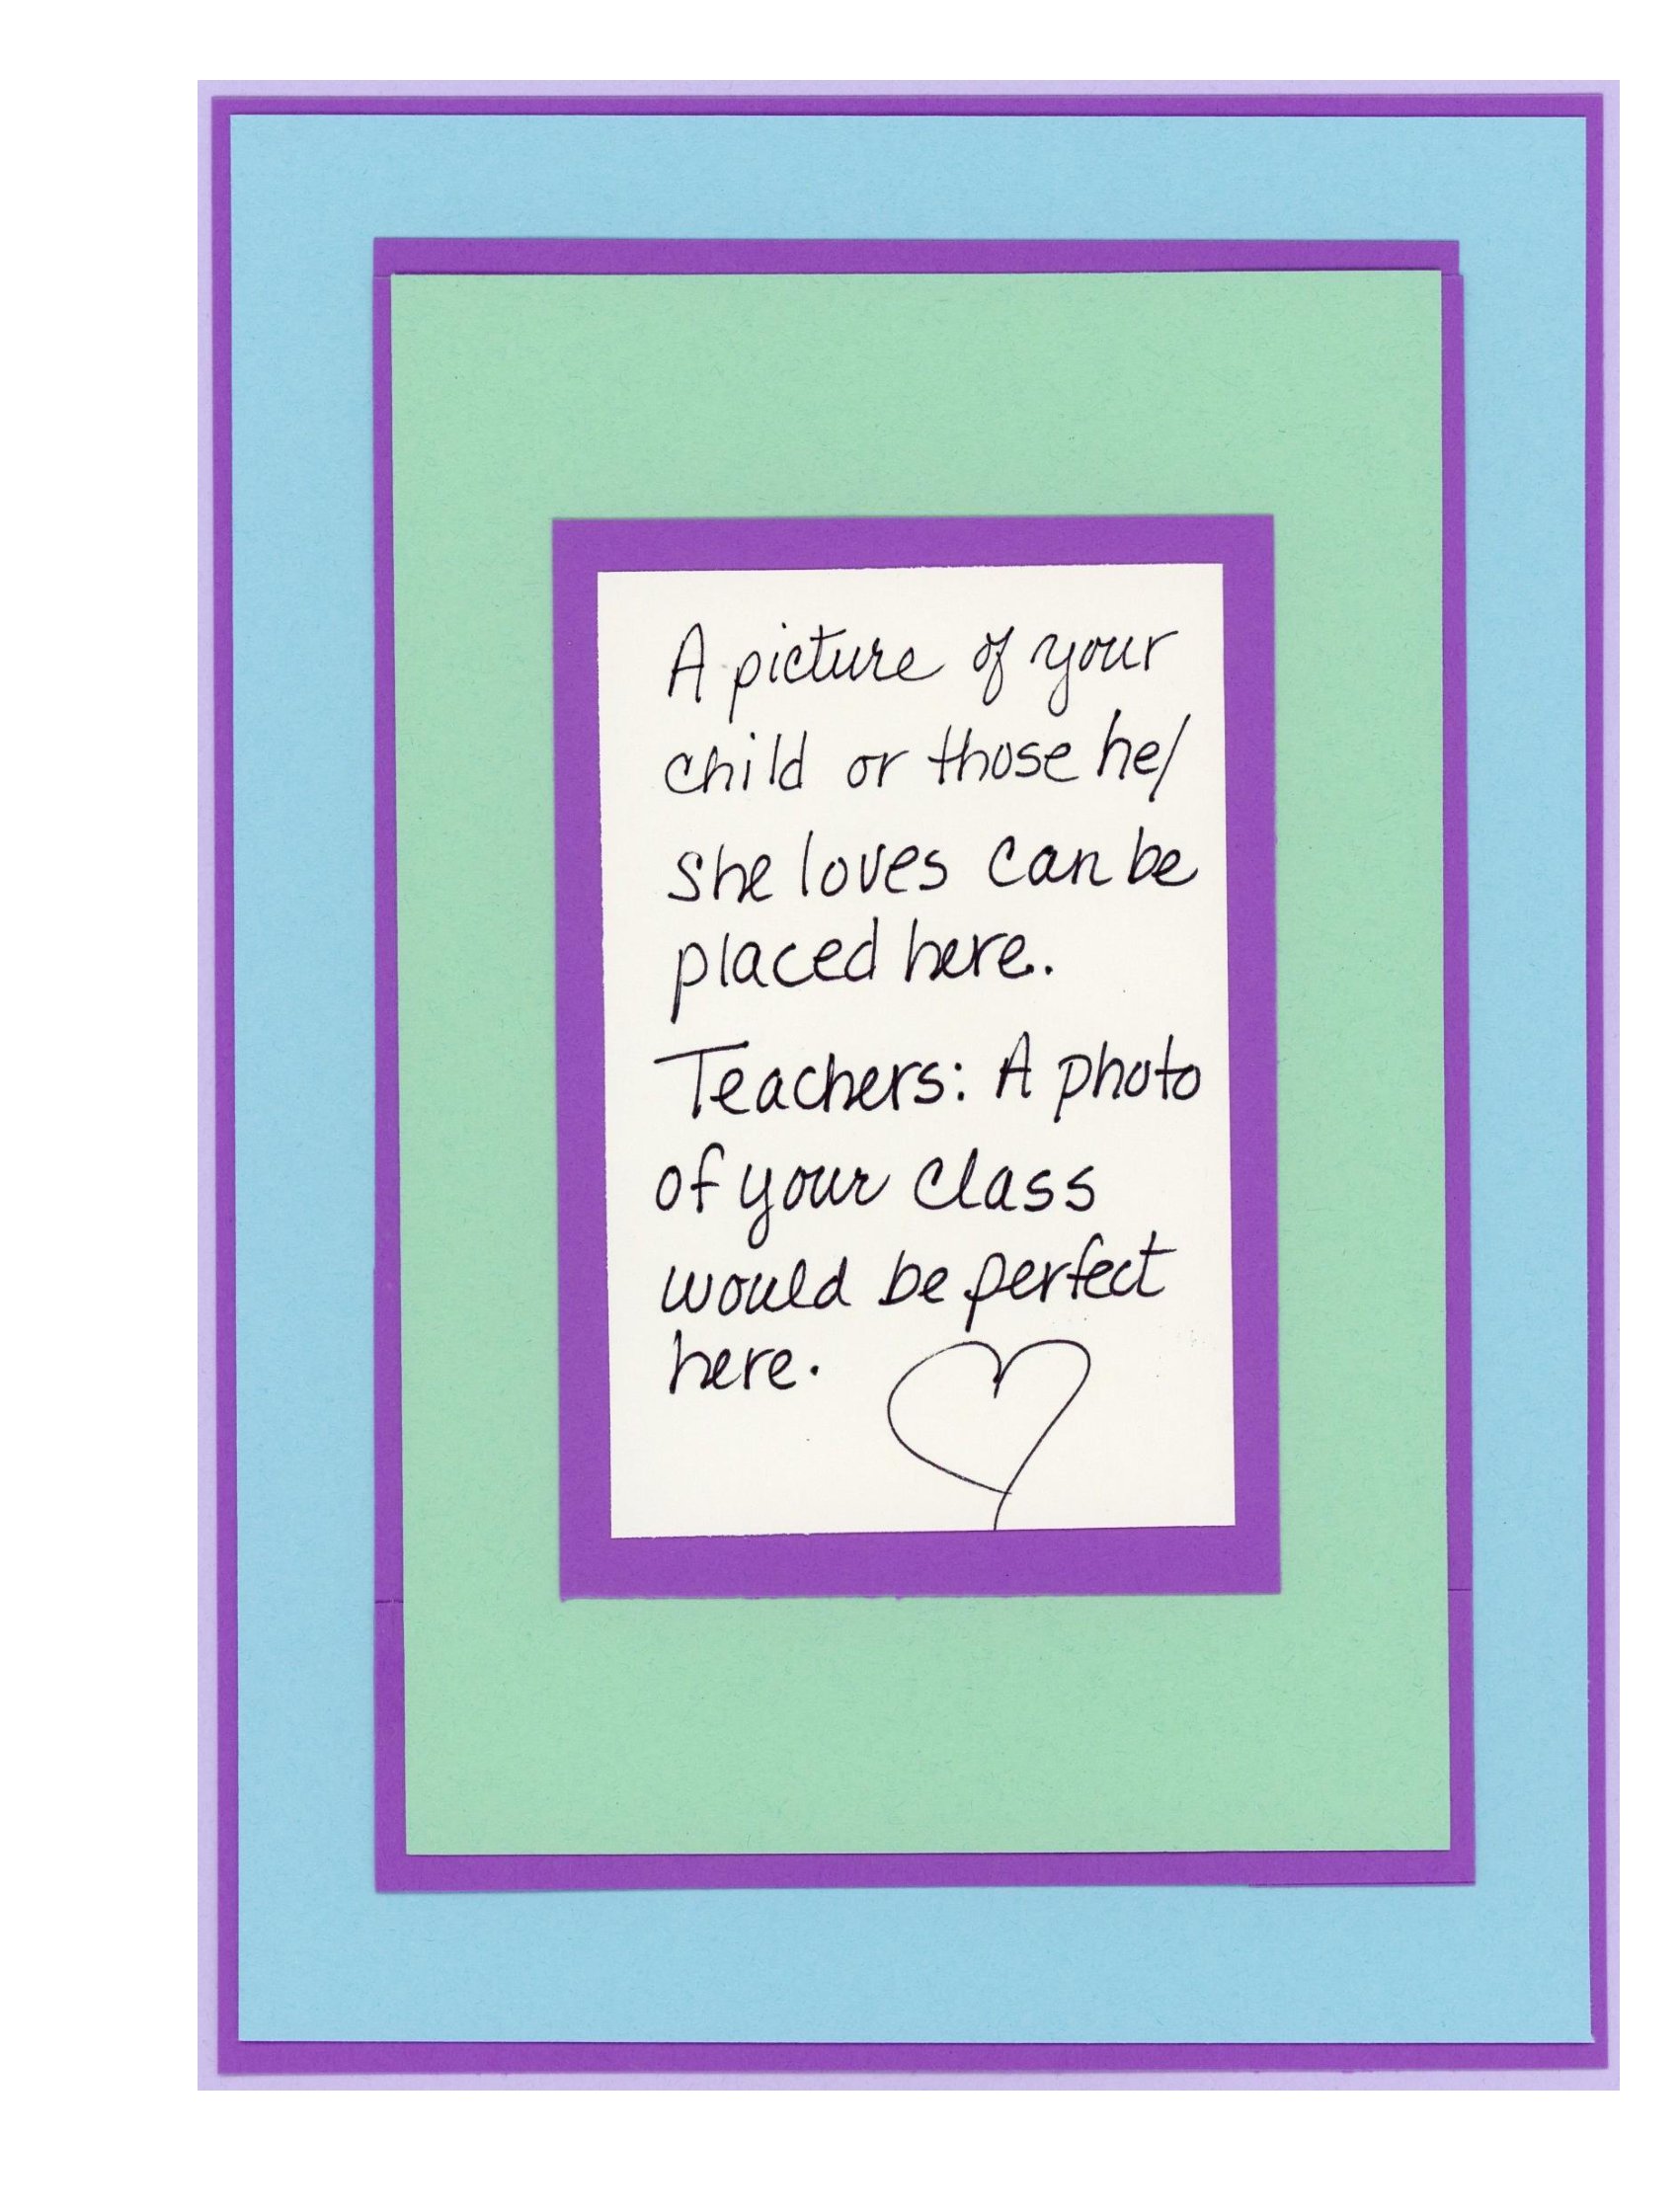 A picture of your
child or those he/
she loves can be
placed here.
Teachers: A photo
of your class
would be perfect
here.